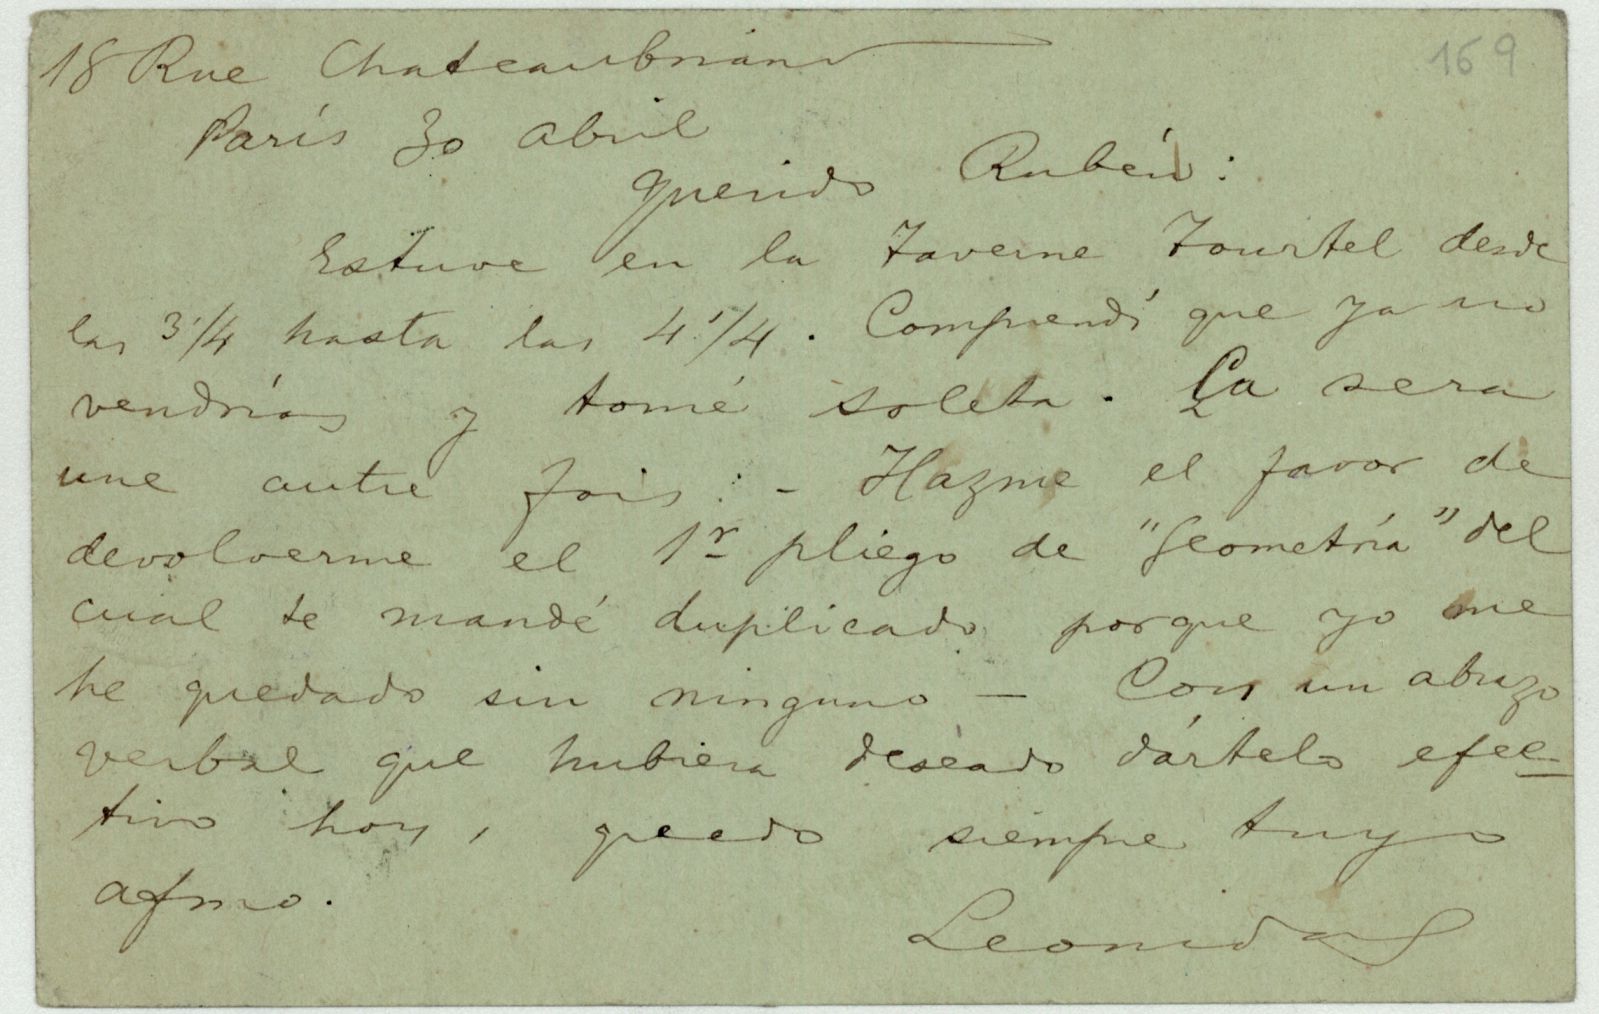 169
18 Rue Chateaubriand
París 30 abril
Querido Rubén:
Estuve en la Taverne Tourtel desde
las 3 1/4 hasta las 4 1/4. Comprendí que ya no
vendrías y tomé soleta. Ça sera
une autre fois. - Hazme el favor de
devolverme el 1r pliego de "Geometría" del
cual te mandé duplicado porque yo me
he quedado sin ninguno — Con un abrazo
verbal que hubiera deseado dártelo efec-
tivo hoy, quedo siempre tuyo
afmo.
Leonidas